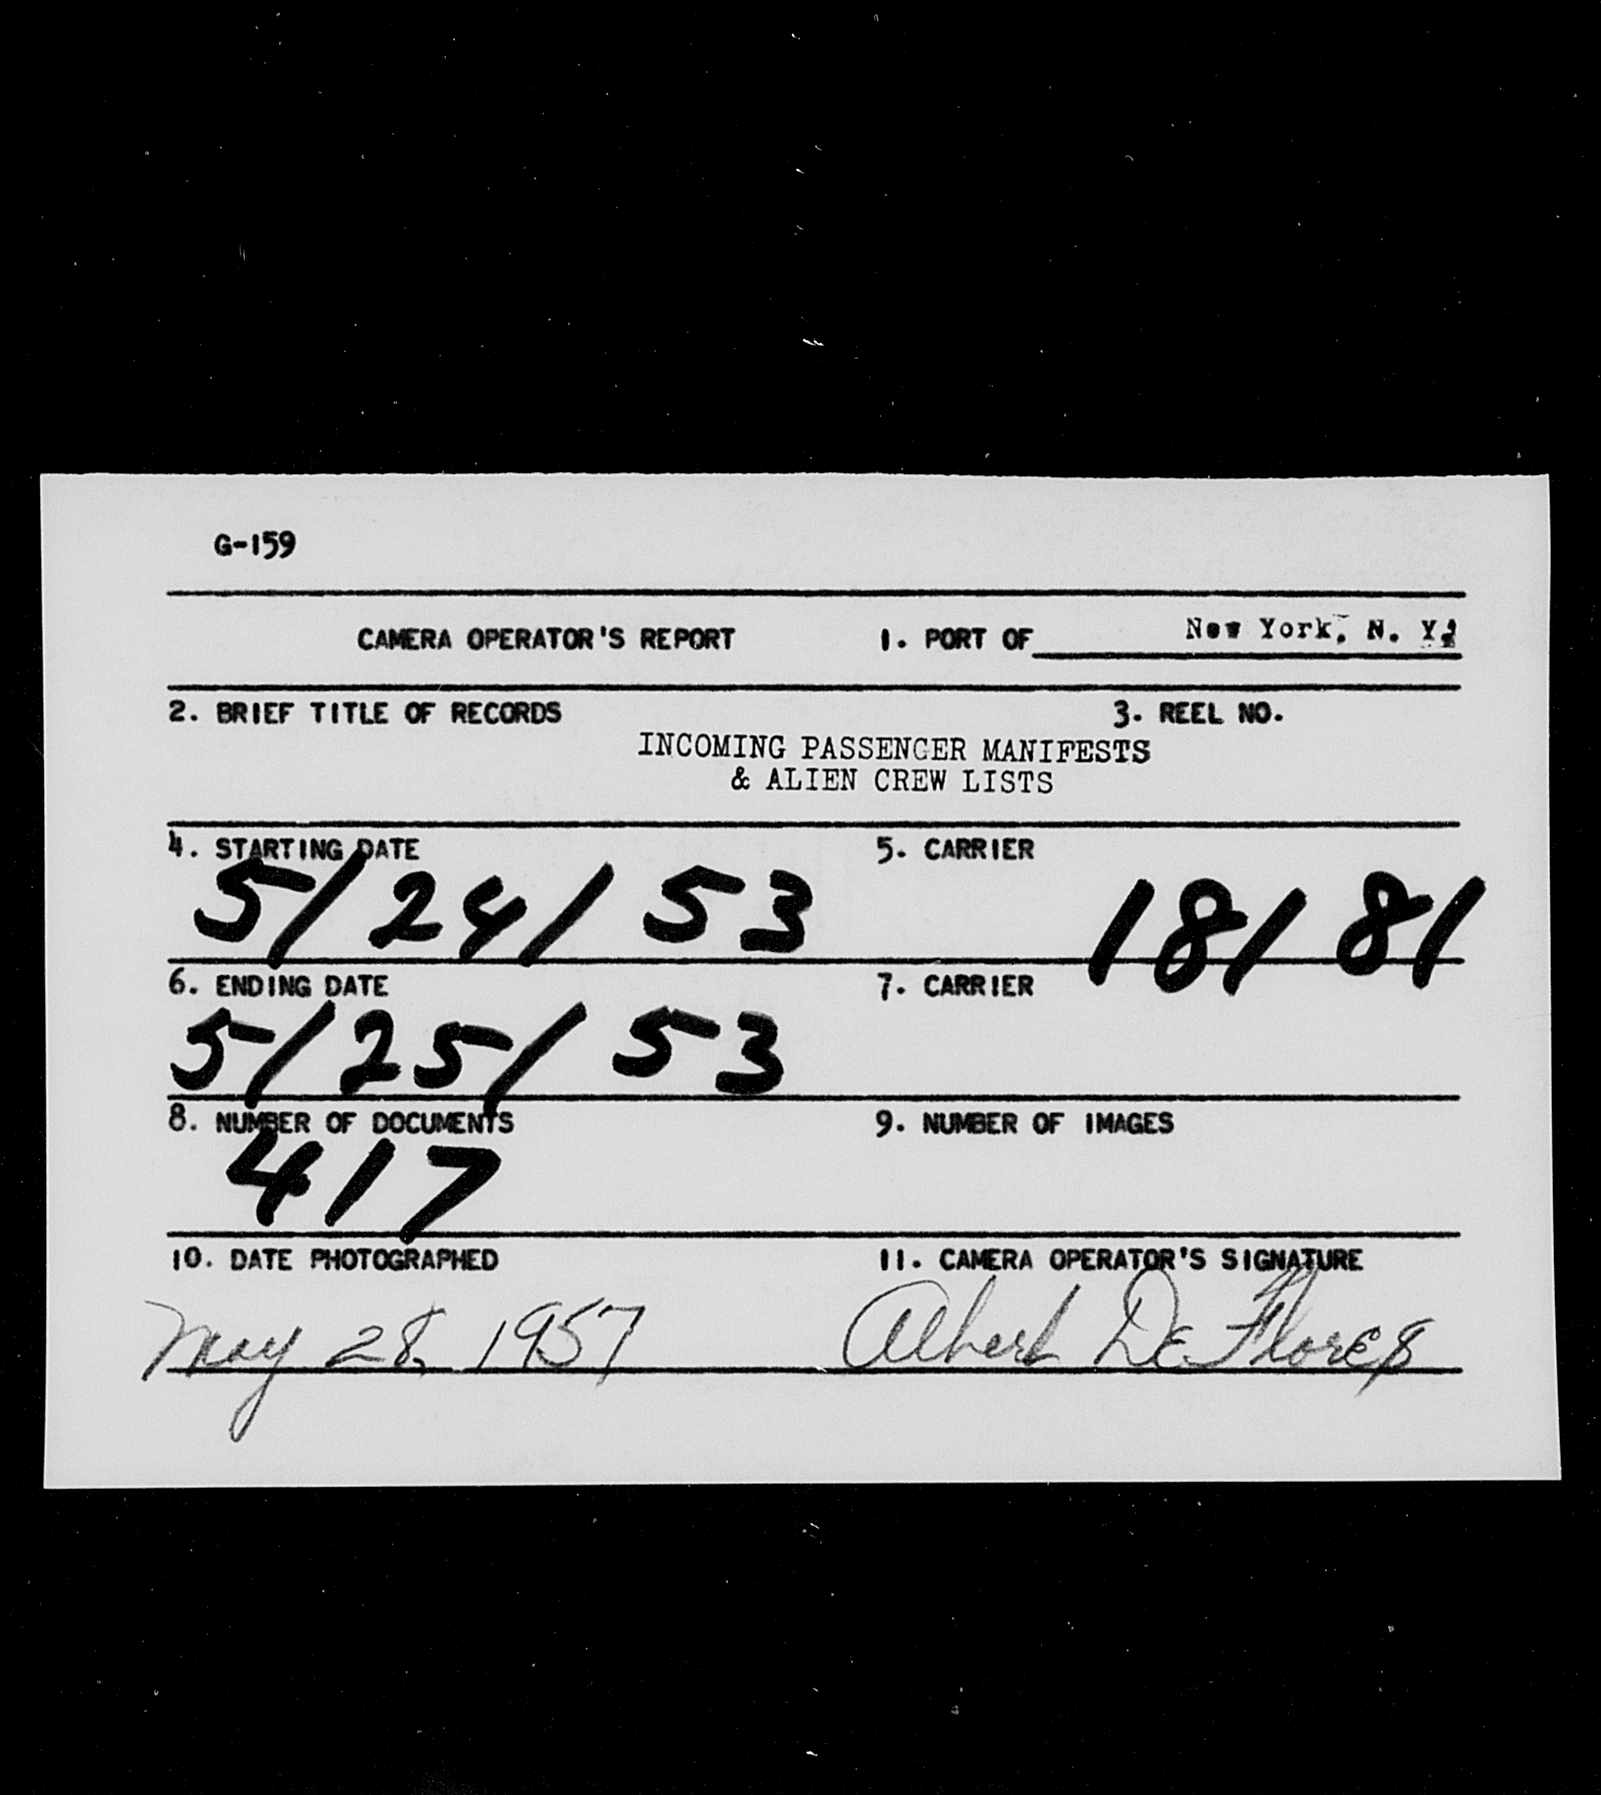 G-159
CAMERA OPERATOR'S REPORT 1. PORT OF New York, N. Y.
2. BRIEF TITLE OF RECORDS 3. REEL NO.
INCOMING PASSENGER MANIFESTS
& ALIEN CREW LISTS
4. STARTING DATE 5. CARRIER
5/24/53 18181
6. ENDING DATE 7. CARRIER
5/25/53
8. NUMBER OF DOCUMENTS 9. NUMBER OF IMAGES
417
10. DATE PHOTOGRAPHED 11. CAMERA OPERATOR'S SIGNATURE
May 28, 1957 Albert De Flores